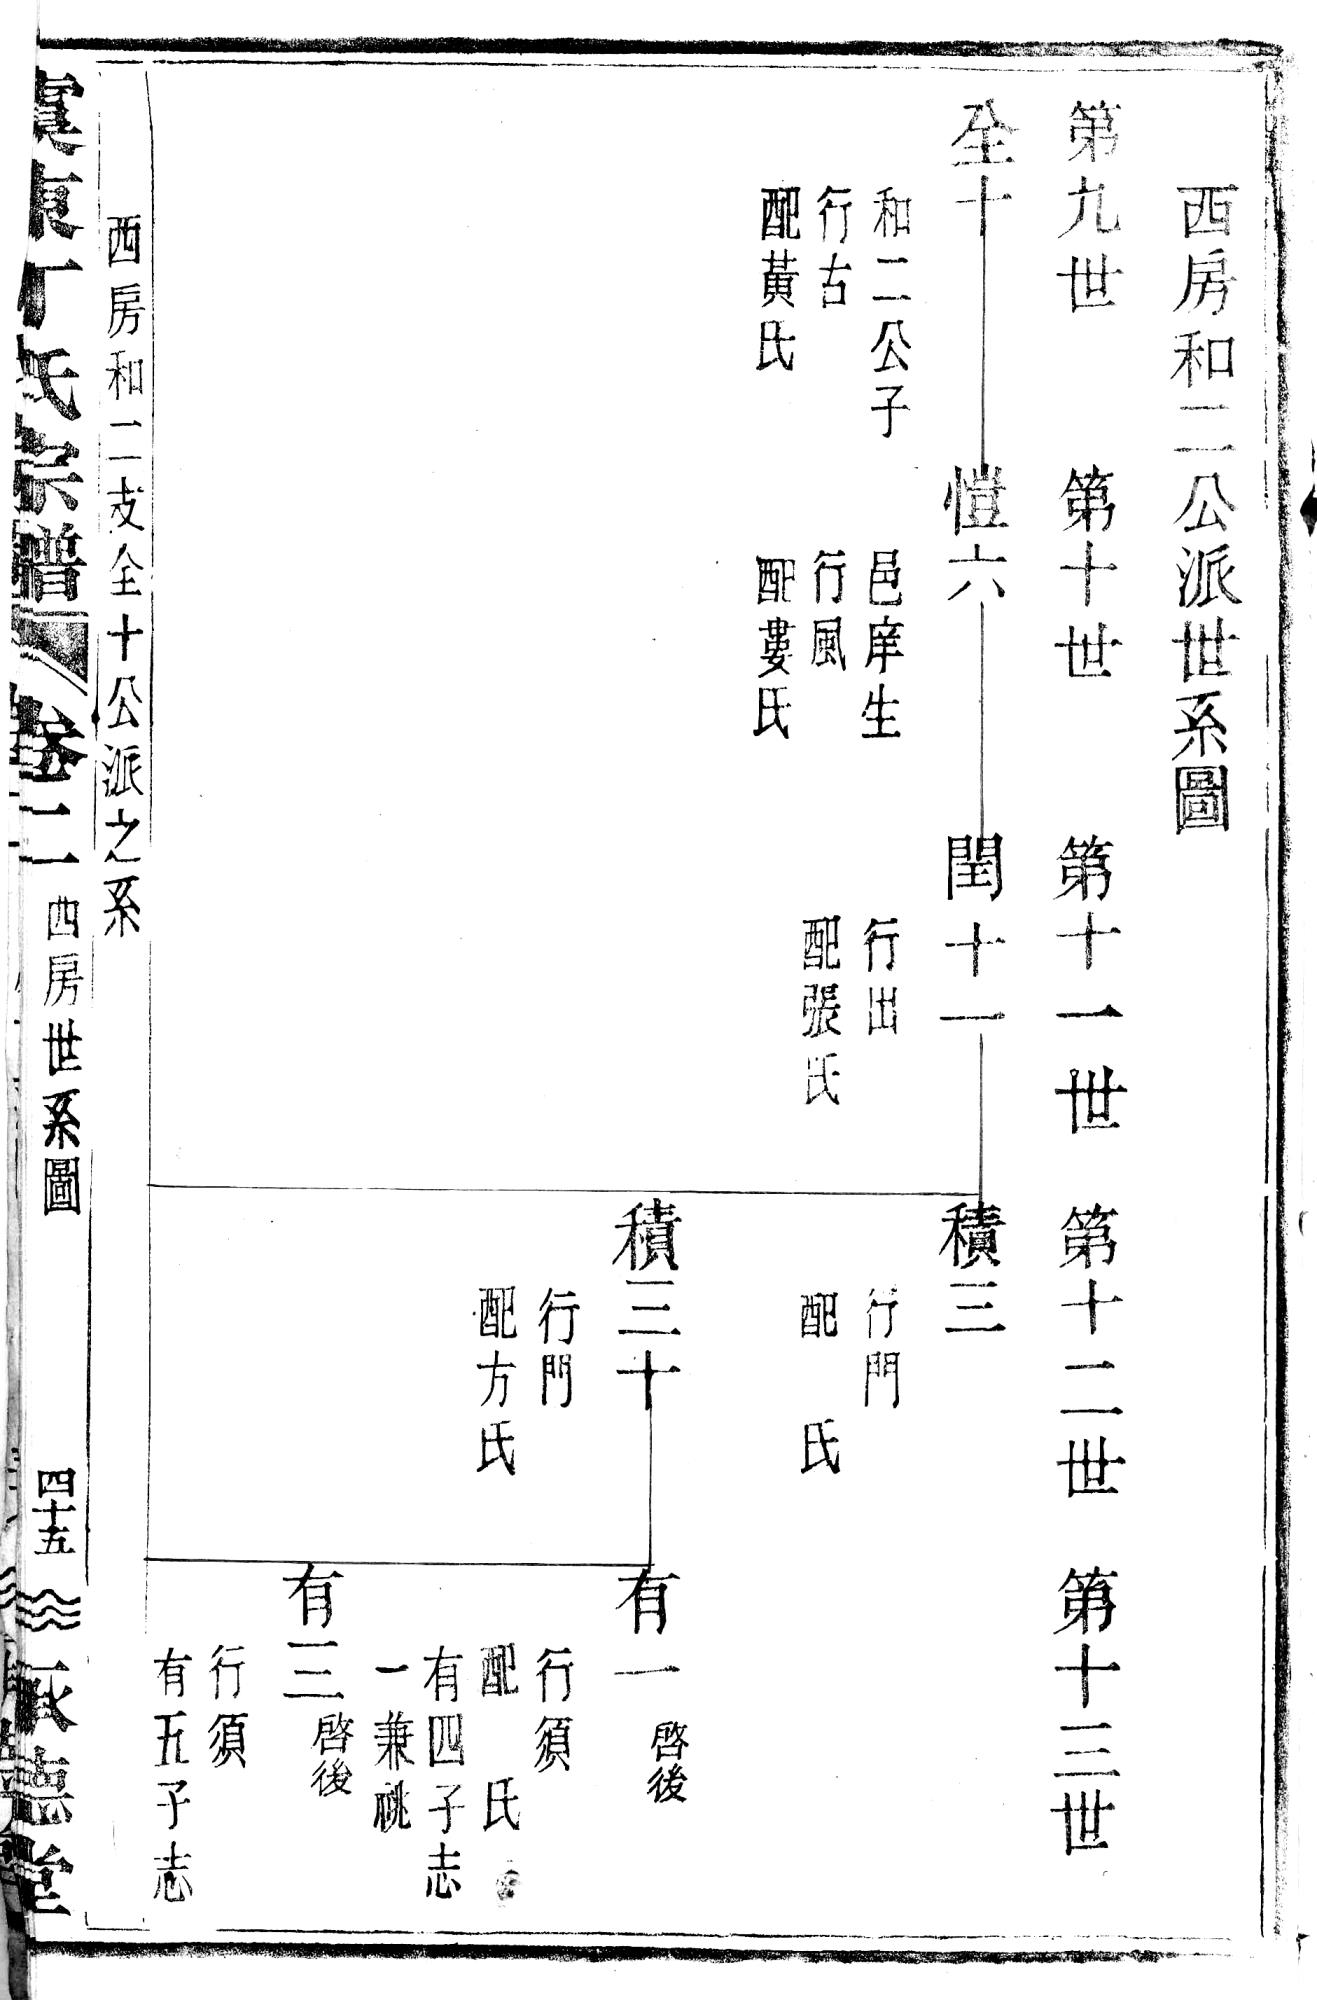 西房和二公派世系圖
第九世
第十世
第十一世
第十二世
第十三世
全十
和二公子
行古
配黃氏
愷六
邑庠生
行風
配婁氏
閏十一
行出
配張氏
積三
行門
配　氏
積三十
行門
配方氏
有一 啓後
行須
配　氏
有四子志
一兼祧
有三 啓後
行須
有五子志
西房和二支全十公派之系
虞東丁氏宗譜
卷二
西房世系圖
四十五
承德堂